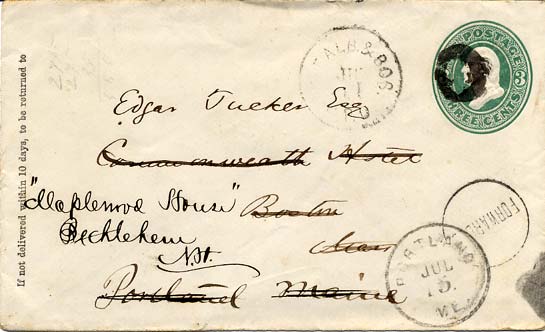 If not delivered within 10 days, to be returned to
ALB. & BOS.
JUL
11
U.S. POSTAGE
3
THREE CENTS
Edgar Tucker Esq
Commonwealth Hotel
"Maplewood House"
Boston
Bethlehem
Mass
N.H.
Portland Maine
FORWARD
PORTLAND
JUL
15
ME.